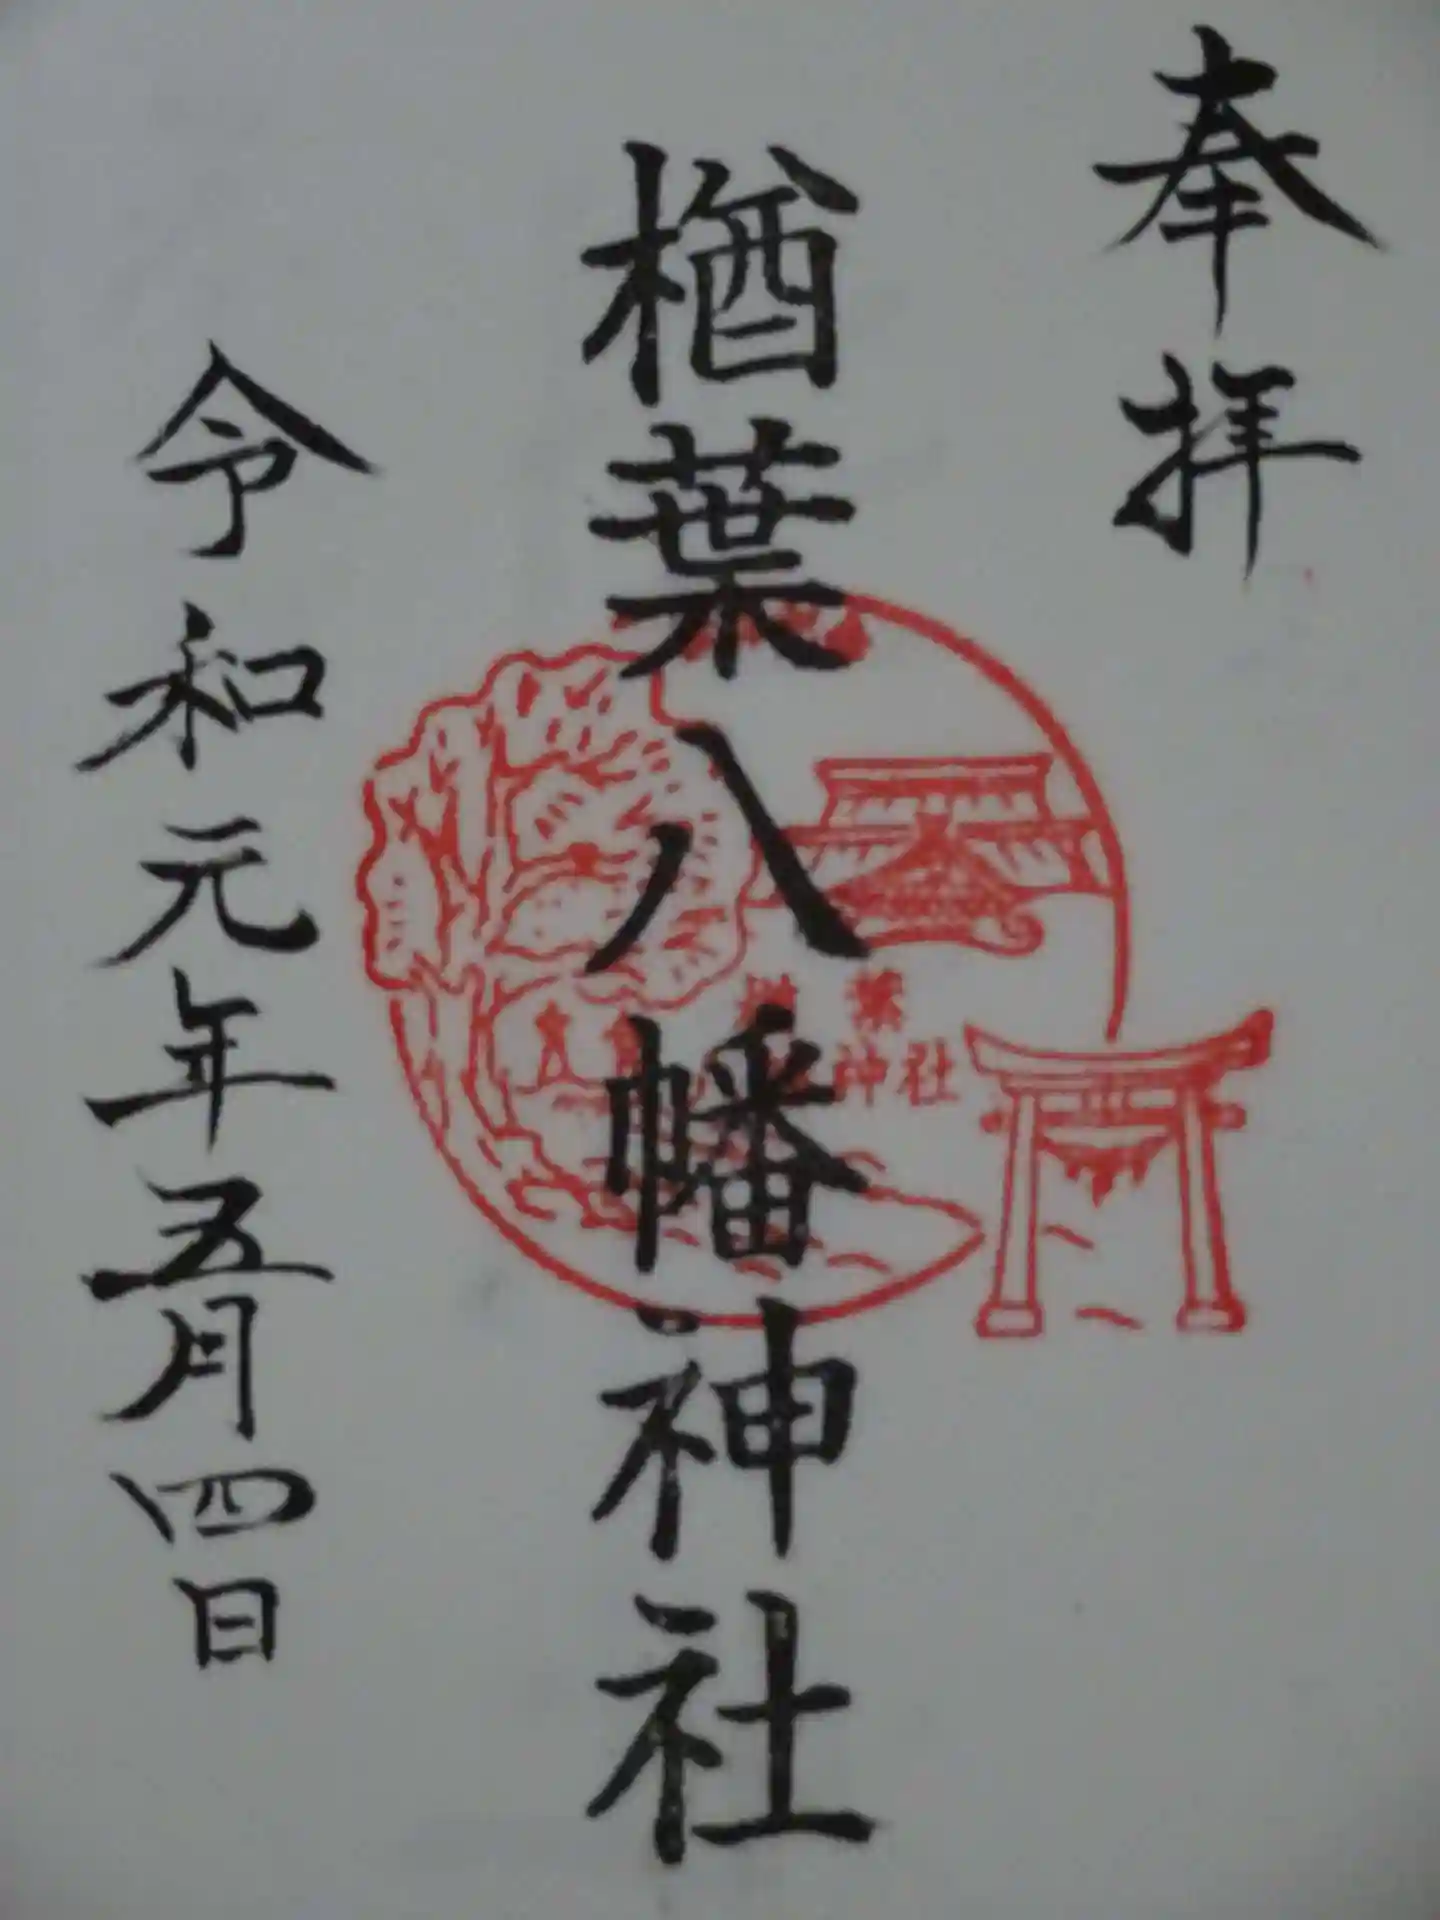 奉拝
楢葉八幡神社
楢葉
神社
令和元年五月四日